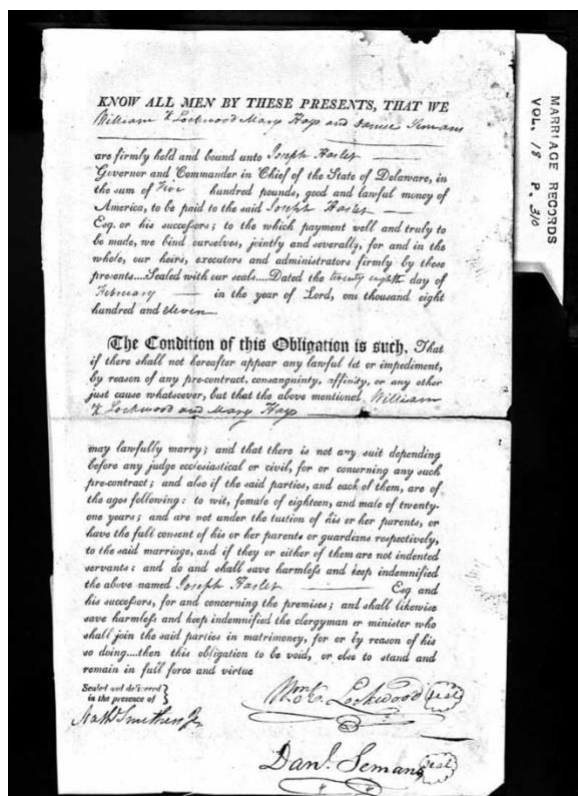 KNOW ALL MEN BY THESE PRESENTS, THAT WE
William K Lockwood Mary Hays and Daniel Semans
are firmly held and bound unto Joseph Haslet
Governor and Commander in Chief of the State of Delaware, in
the sum of Five hundred pounds, good and lawful money of
America, to be paid to the said Joseph Haslet
Esq. or his succeſſors; to the which payment well and truly to
be made, we bind ourselves, jointly and severally, for and in the
whole, our heirs, executors and administrators firmly by these
presents....Sealed with our seals....Dated the twenty eighth day of
February in the year of Lord, one thousand eight
hundred and eleven
The Condition of this Obligation is such, That
if there shall not hereafter appear any lawful let or impediment,
by reason of any pre-contract, consanguinity, affinity, or any other
just cause whatsoever, but that the above mentioned William
K Lockwood and Mary Hays
may lawfully marry; and that there is not any suit depending
before any judge ecclesiastical or civil, for or concerning any such
pre-contract; and also if the said parties, and each of them, are of
the ages following: to wit, female of eighteen, and male of twenty-
one years; and are not under the tuition of his or her parents, or
have the full consent of his or her parents or guardians respectively,
to the said marriage, and if they or either of them are not indented
servants: and do and shall save harmleſs and keep indemnified
the above named Joseph Haslet Esq and
his succeſſors, for and concerning the premises; and shall likewise
save harmleſs and keep indemnified the clergyman or minister who
shall join the said parties in matrimony, for or by reason of his
so doing....then this obligation to be void, or else to stand and
remain in full force and virtue
Sealed and delivered
in the presence of
Lockwood Seal
Danl. Semans Seal
MARRIAGE RECORDS
VOL. 18 P. 310